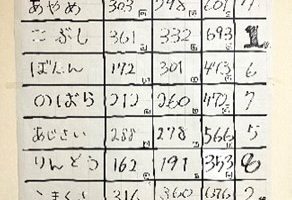 あやめ 303 298 601
こぶし 361 332 693 1
ぼたん 172 301 473 6
のばら 212 260 472 7
あじさい 288 278 566 5
りんどう 162 191 353 8
こまくさ 316 360 676 2